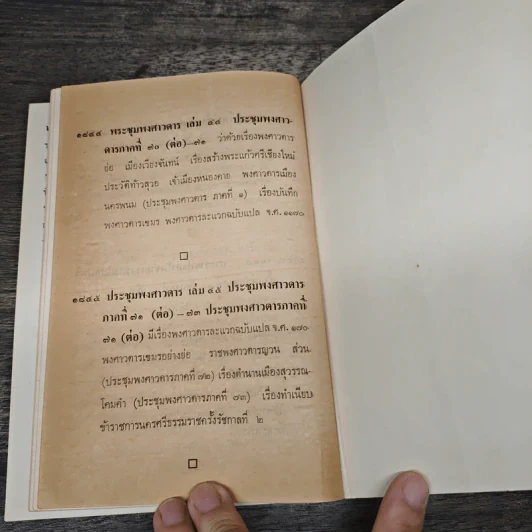 ๑๘๕๔ พระชุมพงศาวดาร เล่ม ๔๔ ประชุมพงศาว-
ดารภาคที่ ๗๐ (ต่อ)-๗๑ ว่าด้วยเรื่องพงศาวดาร
ย่อ เมืองเวียงจันทน์ เรื่องสร้างพระแก้วศรีเชียงใหม่
ประวัติท้าวสุวอ เจ้าเมืองหนองคาย พงศาวดารเมือง
นครพนม (ประชุมพงศาวดาร ภาคที่ ๑) เรื่องบันทึก
พงศาวดารเขมร พงศาวดารละแวกฉบับแปล จ.ศ. ๑๑๗๐
๑๘๕๕ ประชุมพงศาวดาร เล่ม ๔๕ ประชุมพงศาวดาร
ภาคที่ ๗๑ (ต่อ) – ๗๓ ประชุมพงศาวดารภาคที่
๗๑ (ต่อ) มีเรื่องพงศาวดารละแวกฉบับแปล จ.ศ. ๑๗๐
พงศาวดารเขมรอย่างย่อ ราชพงศาวดารญวน ส่วน
(ประชุมพงศาวดารภาคที่ ๗๒) เรื่องตำนานเมืองสุวรรณ-
โคมคำ (ประชุมพงศาวดารภาคที่ ๗๓) เรื่องทำเนียบ
ข้าราชการนครศรีธรรมราชครั้งรัชกาลที่ ๒